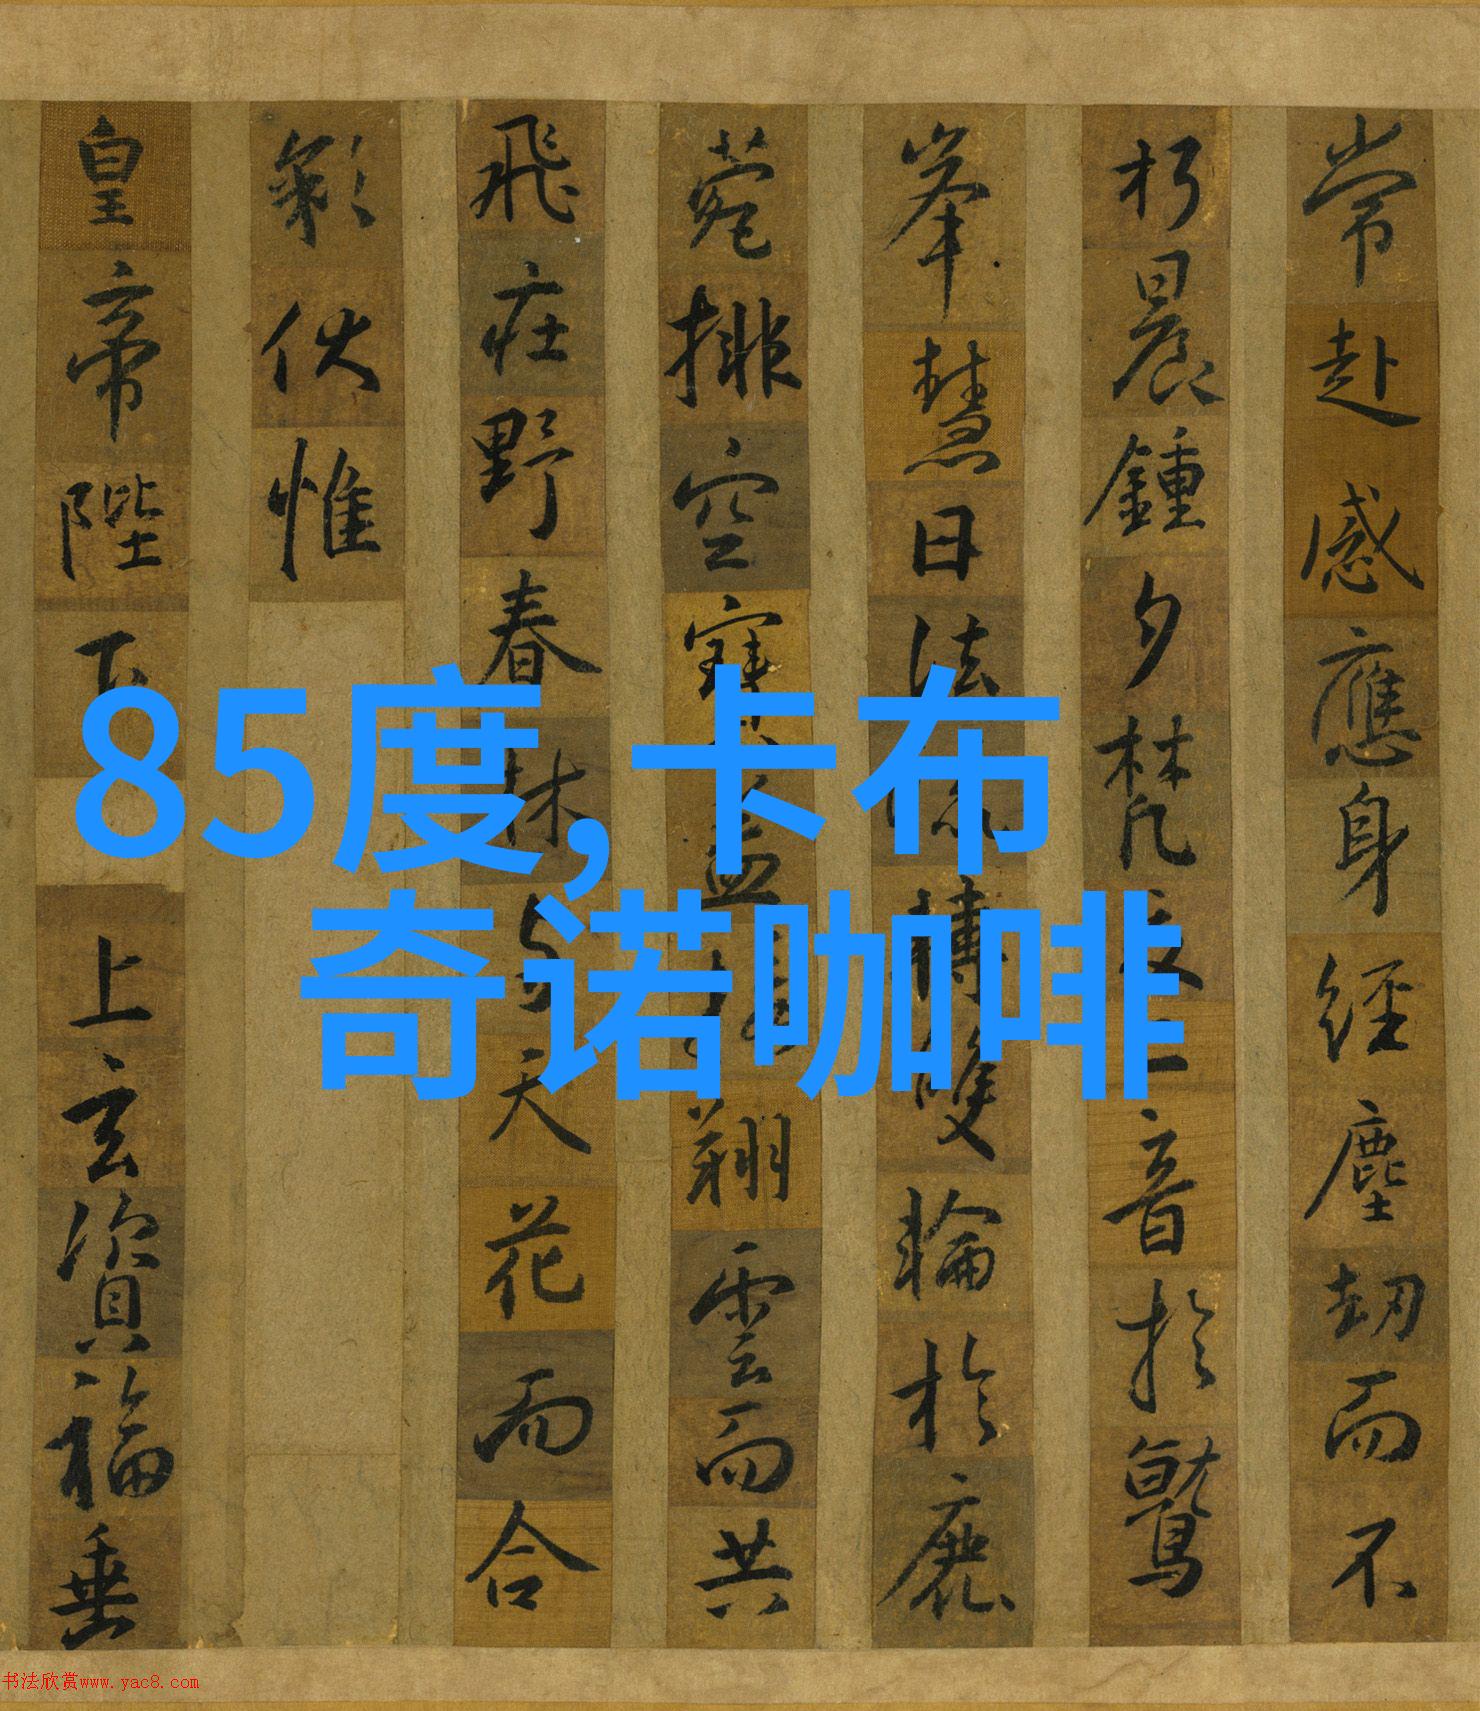 常赴感應身經塵劫而不
朽晨鍾夕梵交二音於鷲
峯慧日法流轉雙輪於鹿
菀排空寶蓋接翔雲而共
飛莊野春林与天花而合
彩伏惟
皇帝陛下上玄資福垂
85度,卡布
奇诺咖啡
书法欣赏www.yac8.com